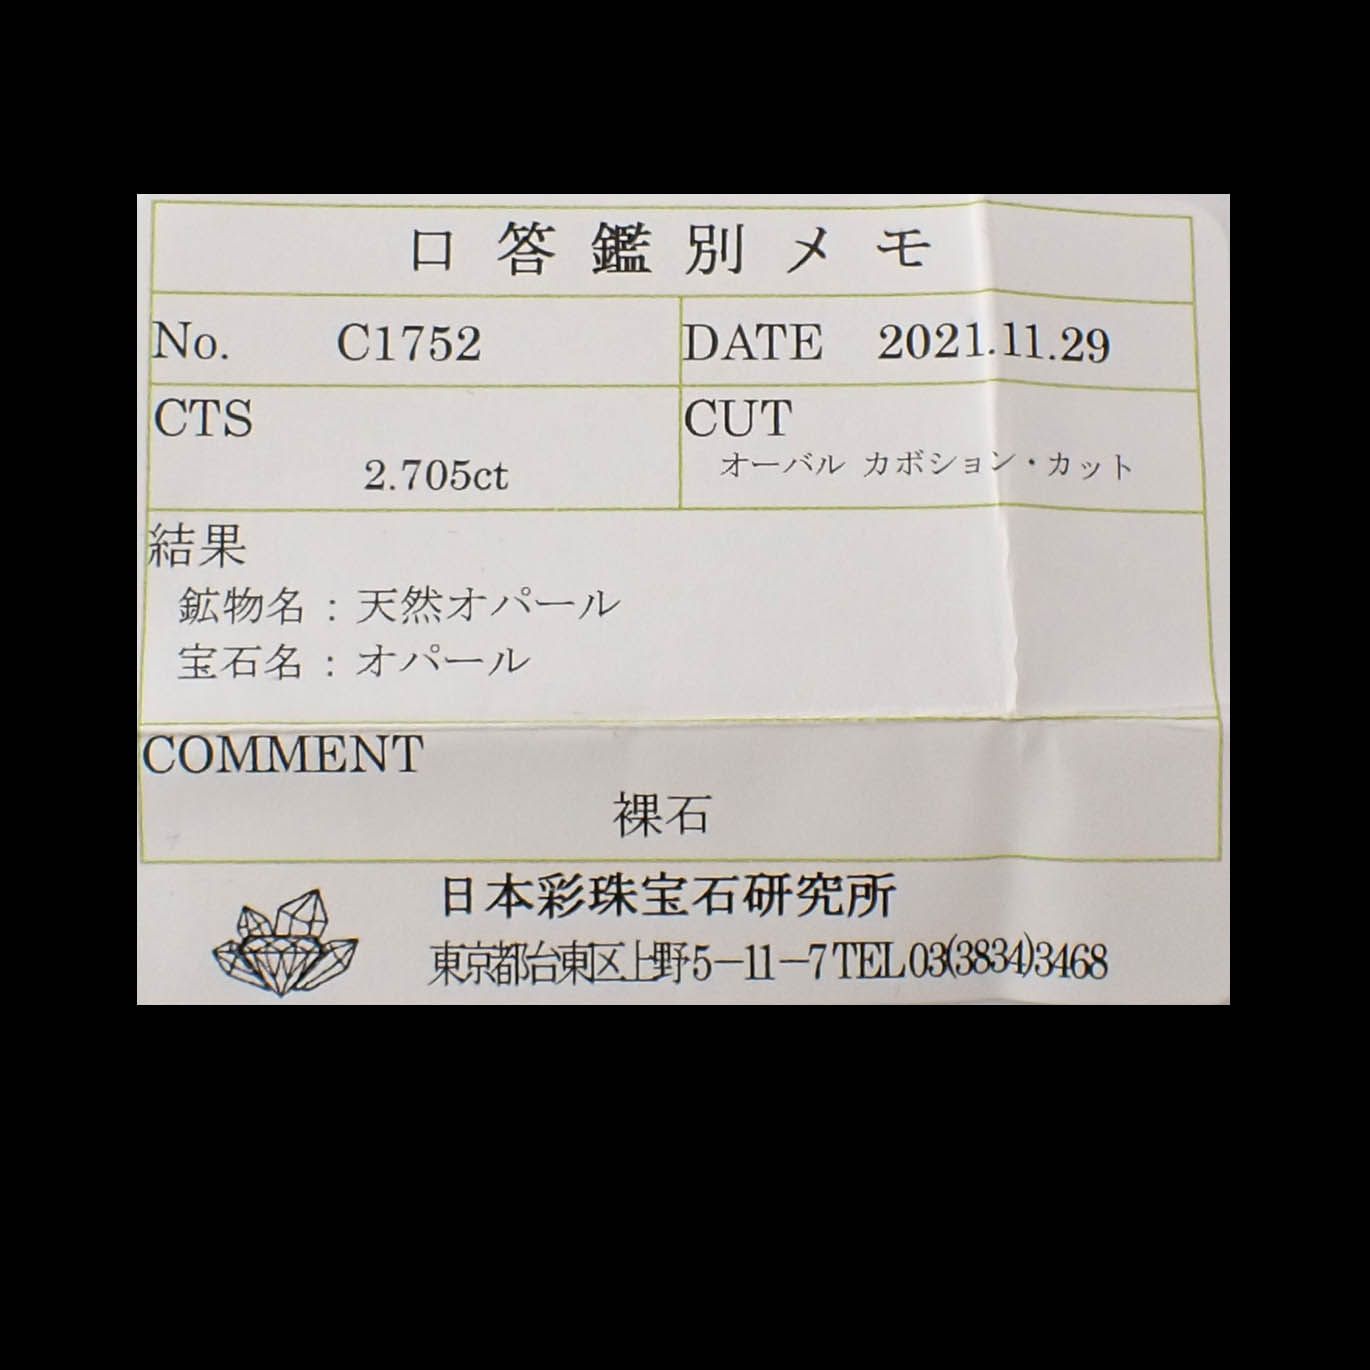 口答鑑別メモ
No. C1752 DATE 2021.11.29
CTS CUT
2.705ct オーバル カボション・カット
結果
鉱物名：天然オパール
宝石名：オパール
COMMENT
裸石
日本彩珠宝石研究所
東京都台東区上野5－11－7 TEL 03(3834)3468